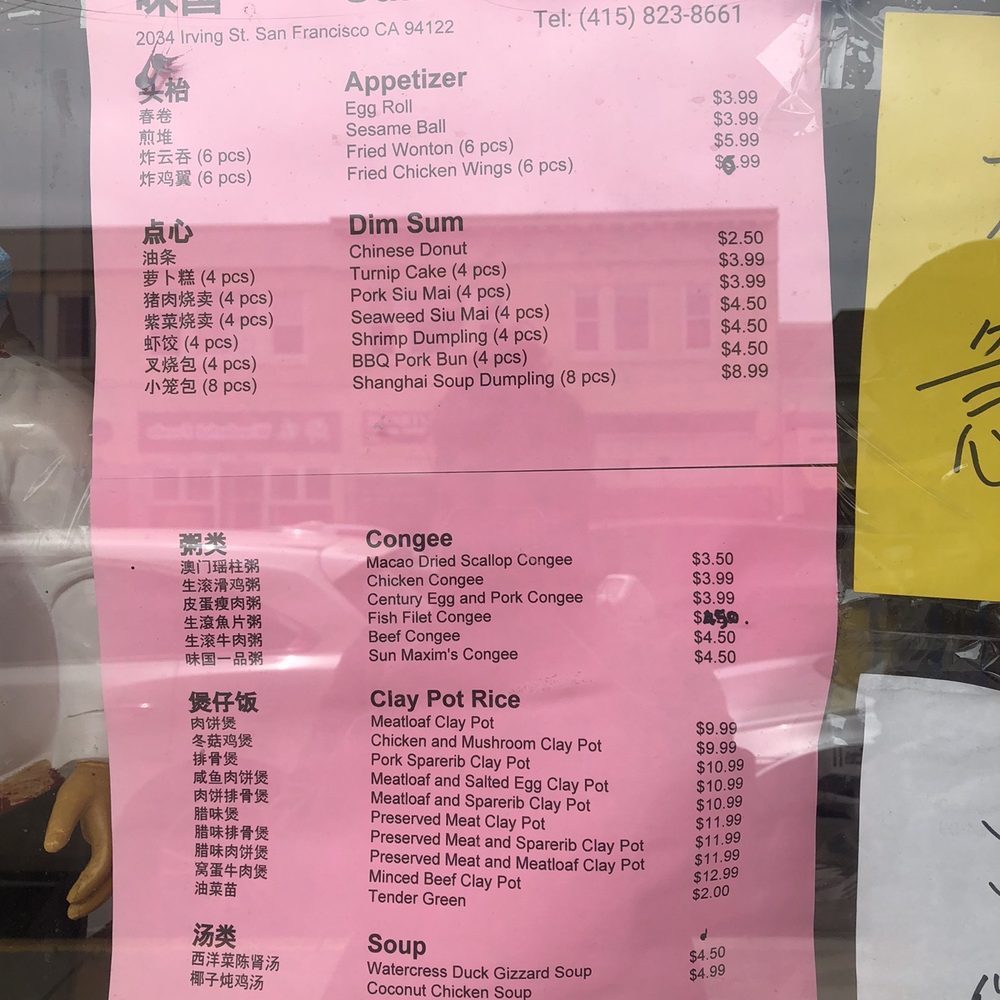 味国
2034 Irving St. San Francisco CA 94122
Tel: (415) 823-8661
头枱 Appetizer
春卷 Egg Roll $3.99
煎堆 Sesame Ball $3.99
炸云吞 (6 pcs) Fried Wonton (6 pcs) $5.99
炸鸡翼 (6 pcs) Fried Chicken Wings (6 pcs) $6.99
点心 Dim Sum
油条 Chinese Donut $2.50
萝卜糕 (4 pcs) Turnip Cake (4 pcs) $3.99
猪肉烧卖 (4 pcs) Pork Siu Mai (4 pcs) $3.99
紫菜烧卖 (4 pcs) Seaweed Siu Mai (4 pcs) $4.50
虾饺 (4 pcs) Shrimp Dumpling (4 pcs) $4.50
叉烧包 (4 pcs) BBQ Pork Bun (4 pcs) $4.50
小笼包 (8 pcs) Shanghai Soup Dumpling (8 pcs) $8.99
粥类 Congee
澳门瑶柱粥 Macao Dried Scallop Congee $3.50
生滚滑鸡粥 Chicken Congee $3.99
皮蛋瘦肉粥 Century Egg and Pork Congee $3.99
生滾魚片粥 Fish Filet Congee $4.50.
生滚牛肉粥 Beef Congee $4.50
味国一品粥 Sun Maxim's Congee $4.50
煲仔饭 Clay Pot Rice
肉饼煲 Meatloaf Clay Pot $9.99
冬菇鸡煲 Chicken and Mushroom Clay Pot $9.99
排骨煲 Pork Sparerib Clay Pot $10.99
咸鱼肉饼煲 Meatloaf and Salted Egg Clay Pot $10.99
肉饼排骨煲 Meatloaf and Sparerib Clay Pot $10.99
腊味煲 Preserved Meat Clay Pot $11.99
腊味排骨煲 Preserved Meat and Sparerib Clay Pot $11.99
腊味肉饼煲 Preserved Meat and Meatloaf Clay Pot $11.99
窝蛋牛肉煲 Minced Beef Clay Pot $12.99
油菜苗 Tender Green $2.00
汤类 Soup
西洋菜陈肾汤 Watercress Duck Gizzard Soup $4.50
椰子炖鸡汤 Coconut Chicken Soup $4.99
急